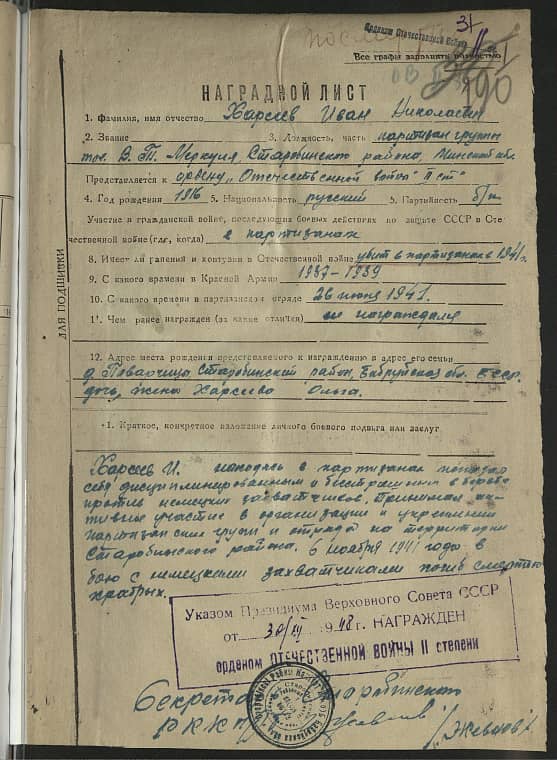 Орденом Отечественной Войны
31
Все графы заполнять полностью
НАГРАДНОЙ ЛИСТ
1. Фамилия, имя отчество Харсеев Иван Николаевич
2. Звание 3. Должность, часть партизан группы
тов. В. П. Меркуля, Старобинского района, Минской обл.
Представляется к ордену „Отечественной войны II ст"
4. Год рождения 1916 5. Национальность русский 5. Партийность б/п
Участие в гражданской войне, последующих боевых действиях по защите СССР в Оте-
чественной войне (где, когда) в партизанах
8. Имеет ли ранения и контузии в Отечественной войне убит в партизанах в 1941 г.
9. С какого времени в Красной Армии 1937-1939
10. С какого времени в партизанском отряде 26 июня 1941.
11. Чем ранее награжден (за какие отличия) не награждался
12. Адрес места рождения представляемого к награждению и адрес его семьи
д. Старобинский район, Бобруйская обл. БССР.
жена Харсеева Ольга.
1. Краткое, конкретное изложение личного боевого подвига или заслуг
Харсеев И. находясь в партизанах показал
себя дисциплинированным и бесстрашным в борьбе
против немецких захватчиков. Принимал ак-
тивное участие в организации и укреплении
партизанских групп и отряда на территории
Старобинского района. 6 ноября 1941 года в
бою с немецкими захватчиками погиб смертью
храбрых.
Указом Президиума Верховного Совета СССР
от 30/XII 1948 г. НАГРАЖДЕН
орденом ОТЕЧЕСТВЕННОЙ ВОЙНЫ II степени
Секретарь Старобинского
РК КП
ДЛЯ ПОДШИВКИ